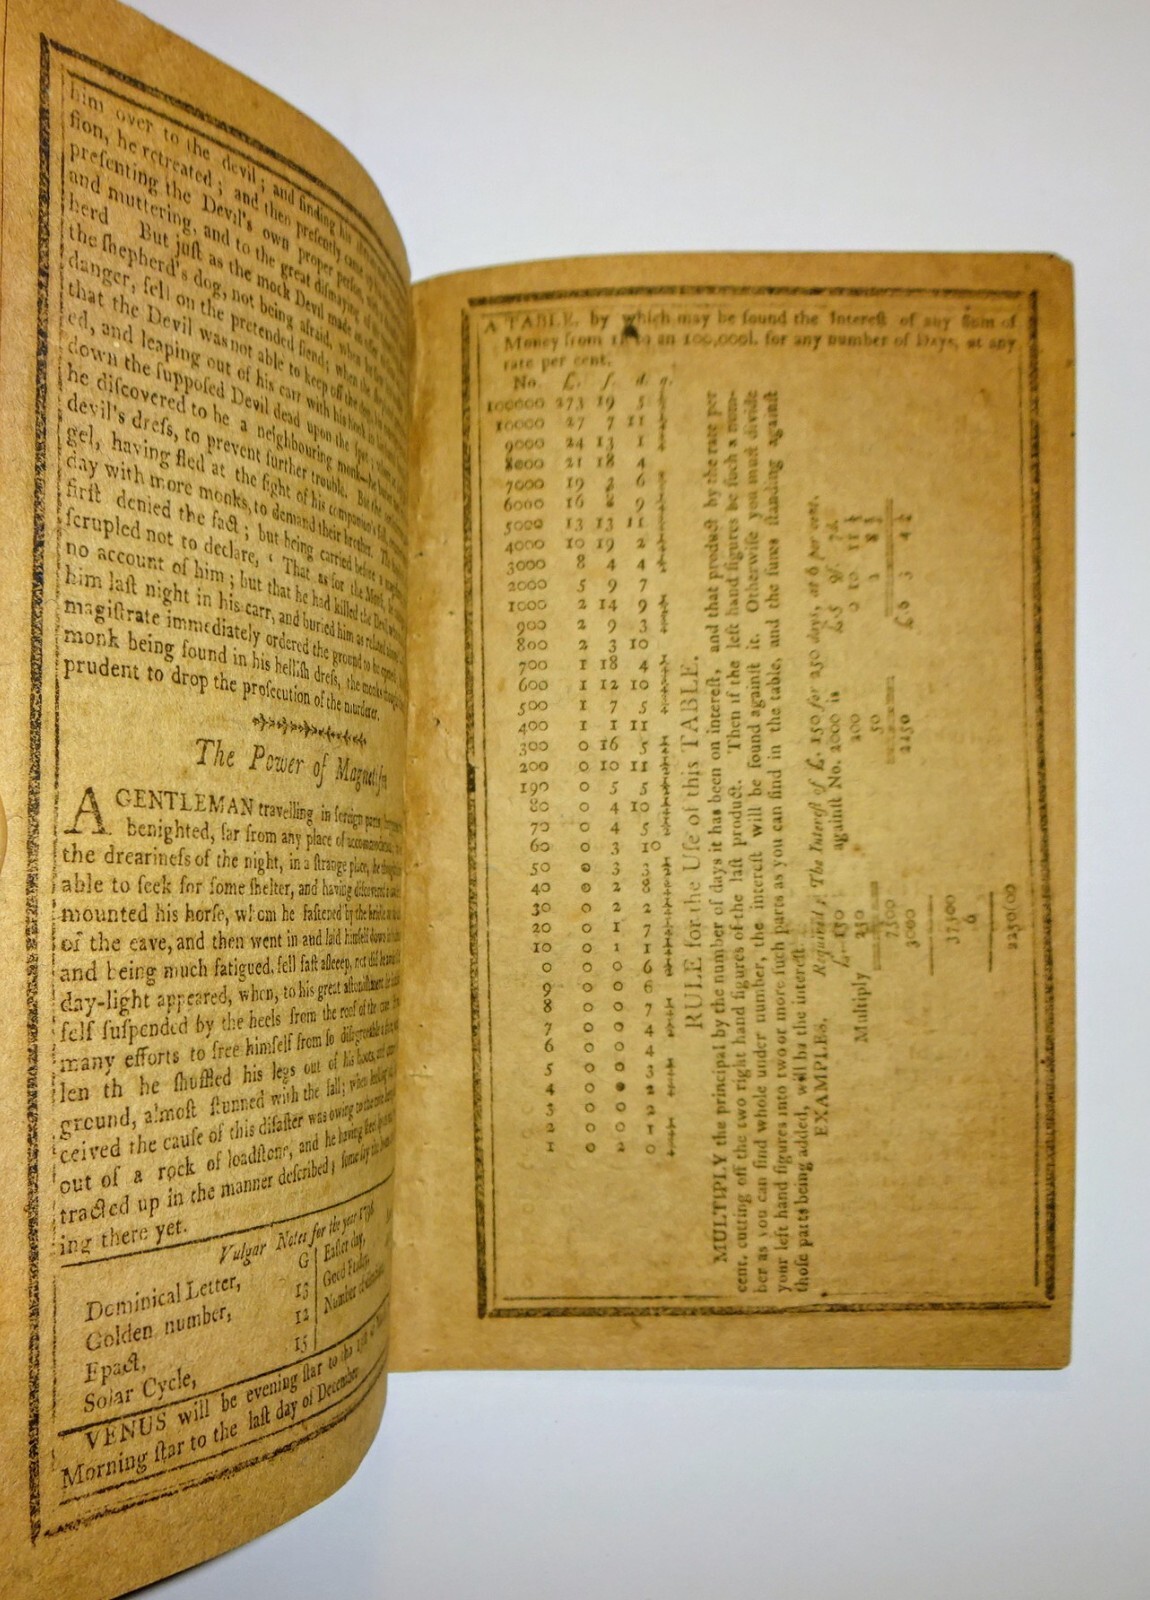 him over to the devil; and finding his
ſion, he retreated; and then preſently came
preſenting the Devil's own proper perſon,
and muttering, and to the great diſmaying of
herd But juſt as the mock Devil made an offer
the ſhepherd's dog, not being afraid, when he
danger, fell on the pretended fiend; when the
that the Devil was not able to keep off the dog,
ed, and leaping out of his carr with his hook in
down the ſuppoſed Devil dead upon the ſpot;
he diſcovered to be a neighbouring monk—he buried
devil's dreſs, to prevent further trouble. But the
gel, having fled at the ſight of his companion's fall,
day with more monks, to demand their brother. The
firſt denied the fact; but being carried before a
ſcrupled not to declare, ' That as for the Monk, he
no account of him; but that he had killed the Devil,
him laſt night in his carr, and buried him as related
magiſtrate immediately ordered the ground to be opened
monk being found in his helliſh dreſs, the monks thought
prudent to drop the proſecution of the murderer.
The Power of Magnetiſm
A GENTLEMAN travelling in foreign parts,
benighted, far from any place of accommodation,
the drearineſs of the night, in a ſtrange place, he thought
able to ſeek for ſome ſhelter, and having diſcovered a
mounted his horſe, whom he faſtened by the bridle
of the cave, and then went in and laid himſelf down
and being much fatigued, fell faſt aſleep, nor did he
day-light appeared, when, to his great aſtoniſhment
ſelf ſuſpended by the heels from the roof of the cave
many efforts to free himſelf from ſo diſagreeable a
len th he ſhuffled his legs out of his boots, and
ground, almoſt ſtunned with the fall; when looking
ceived the cauſe of this diſaſter was owing to the
out of a rock of loadſtone, and he having
tracted up in the manner deſcribed; ſome ſay the
ing there yet.
Vulgar Notes for the year 1796.
Dominical Letter, G
Golden number, 13
Epact, 12
Solar Cycle, 15
Eaſter day,
Good Friday,
Number of
VENUS will be evening ſtar to the
Morning ſtar to the laſt day of December
A TABLE, by which may be found the Intereſt of any Sum of
Money from 1l. to an 100,000l. for any number of Days, at any
rate per cent.
No. £. ſ. d. q.
100000 273 19 5
10000 27 7 11
9000 24 13 1
8000 21 18 4
7000 19 3 6
6000 16 8 9
5000 13 13 11
4000 10 19 2
3000 8 4 4
2000 5 9 7
1000 2 14 9
900 2 9 3
800 2 3 10
700 1 18 4
600 1 12 10
500 1 7 5
400 1 1 11
300 0 16 5
200 0 10 11
190 0 5 5
80 0 4 10
70 0 4 5
60 0 3 10
50 0 3 3
40 0 2 8
30 0 2 2
20 0 1 7
10 0 1 1
0 0 0 6
9 0 0 6
8 0 0 7
7 0 0 4
6 0 0 4
5 0 0 3
4 0 0 2
3 0 0 2
2 0 0 1
1 0 2 0
RULE for the Uſe of this TABLE.
MULTIPLY the principal by the number of days it has been on intereſt, and that product by the rate per
cent. cutting off the two right hand figures of the laſt product. Then if the left hand figures be ſuch a num-
ber as you can find whole under number, the intereſt will be found againſt it. Otherwiſe you muſt divide
your left hand figures into two or more ſuch parts as you can find in the table, and the ſums ſtanding againſt
thoſe parts being added, will be the intereſt.
EXAMPLES. Required the Intereſt of £. 150 for 250 days, at 6 per cent.
£. 150 againſt No. 2000 is £5 9ſ. 7d.
Multiply 250 200 0 10 11
7500 50 2 8
3000 2250 £.6 3 4
37500
6
2250|00